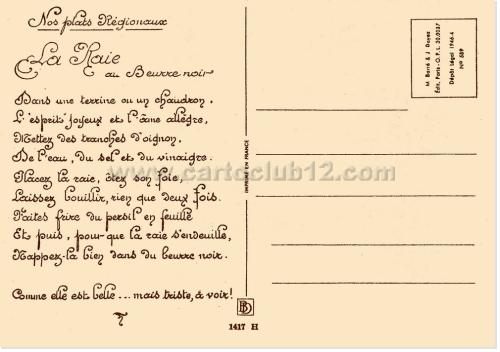 Nos plats Régionaux
La Raie
au Beurre noir
Dans une terrine ou un chaudron,
L'esprit joyeux et l'âme allègre,
Mettez des tranches d'oignon,
De l'eau, du sel et du vinaigre.
Placez la raie, ôtez son foie,
Laissez bouillir, rien que deux fois.
Faites frire du persil en feuille
Et puis, pour que la raie s'endeuille,
Nappez-la bien dans du beurre noir.
Comme elle est belle... mais triste, à voir!
BD
1417 H
IMPRIMÉ EN FRANCE
M. Barré & J. Dayez
Édit. Paris-O.P.L. 30.0037
Dépôt légal 1946-4
N° 589
www.cartoclub12.com